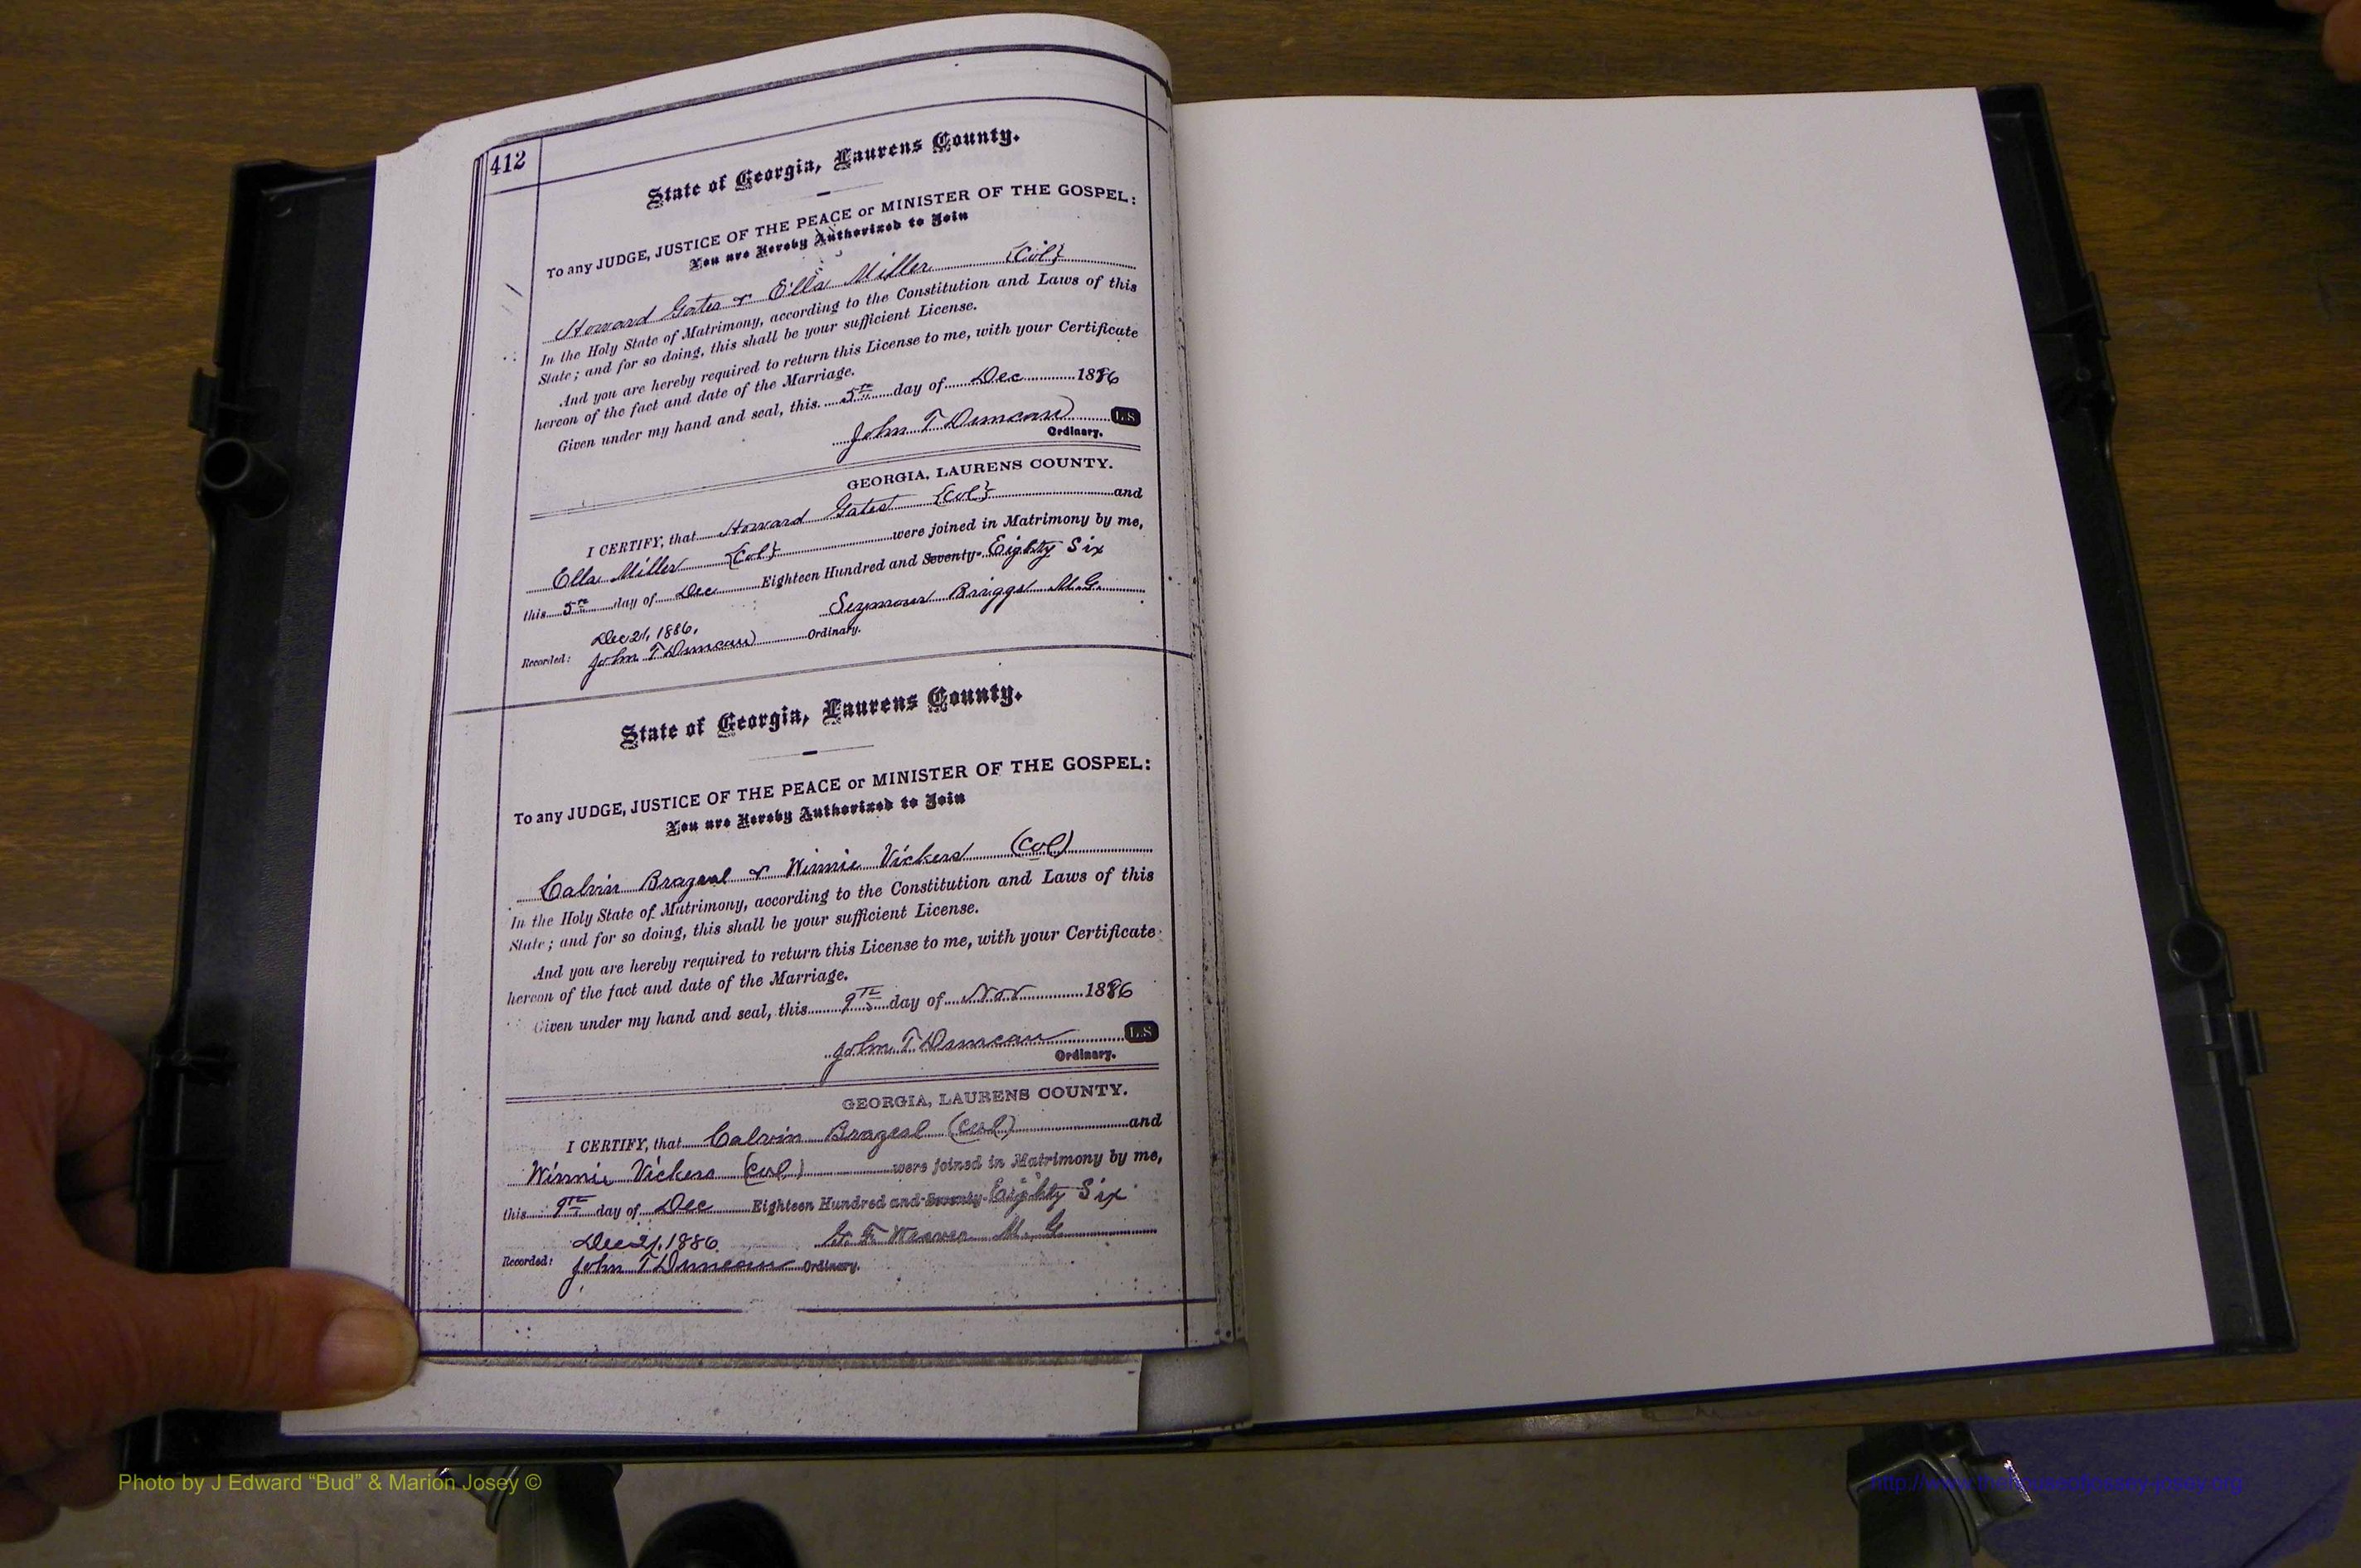 412
State of Georgia, Laurens County.
To any JUDGE, JUSTICE OF THE PEACE or MINISTER OF THE GOSPEL:
You are Hereby Authorized to Join
Howard Gates & Ella Miller {Col}
In the Holy State of Matrimony, according to the Constitution and Laws of this
State; and for so doing, this shall be your sufficient License.
And you are hereby required to return this License to me, with your Certificate
hereon of the fact and date of the Marriage.
Given under my hand and seal, this 5th day of Dec 1886
John T Duncan L.S
Ordinary.
GEORGIA, LAURENS COUNTY.
I CERTIFY, that Howard Gates {Col} and
Ella Miller {Col} were joined in Matrimony by me,
this 5th day of Dec Eighteen Hundred and Seventy- Eighty Six
Seymour Briggs M.G.
Dec 21, 1886,
Recorded: John T Duncan Ordinary.
State of Georgia, Laurens County.
To any JUDGE, JUSTICE OF THE PEACE or MINISTER OF THE GOSPEL:
You are Hereby Authorized to Join
Calvin Brazeal & Winnie Vickers (Col)
In the Holy State of Matrimony, according to the Constitution and Laws of this
State; and for so doing, this shall be your sufficient License.
And you are hereby required to return this License to me, with your Certificate
hereon of the fact and date of the Marriage.
Given under my hand and seal, this 9th day of Nov 1886
John T Duncan L.S
Ordinary.
GEORGIA, LAURENS COUNTY.
I CERTIFY, that Calvin Brazeal (Col) and
Winnie Vickers (Col) were joined in Matrimony by me,
this 9th day of Dec Eighteen Hundred and Seventy- Eighty Six
Weaver M. G.
Dec 21, 1886
Recorded: John T Duncan Ordinary.
Photo by J Edward “Bud” & Marion Josey ©